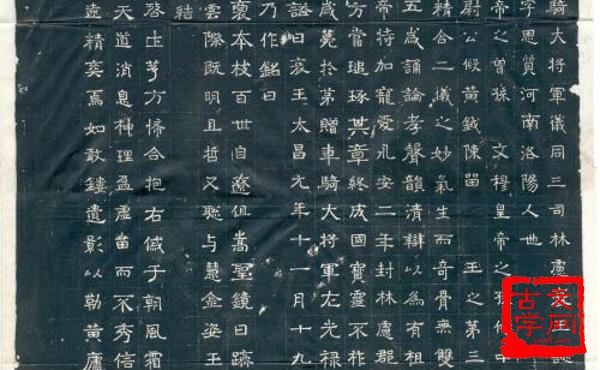 騎大將軍儀同三司林慮哀王
字思質河南洛陽人也
帝之曾孫 文穆皇帝之孫侍中
尉公假黄鉞陳留 王之第三
精含二儀之妙氣生而奇骨無雙
五歲誦論孝聲韻清辯以為有祖
帝特加寵愛永安二年封林慮郡
方當琢其章終成國寶靈不祚
歲薨於第贈車騎大將軍左光祿
謚曰哀王太昌元年十一月十九
乃作銘曰
本枝百世自徂嵩聖鏡日躋
雲際既明且哲又聰与慧金姿玉
結
啓土茅方悕合抱右戚于朝風霜
天道消息神理盈虛苗而不秀信
精奕焉如敢鏤遺影以勒黄廬
古学网